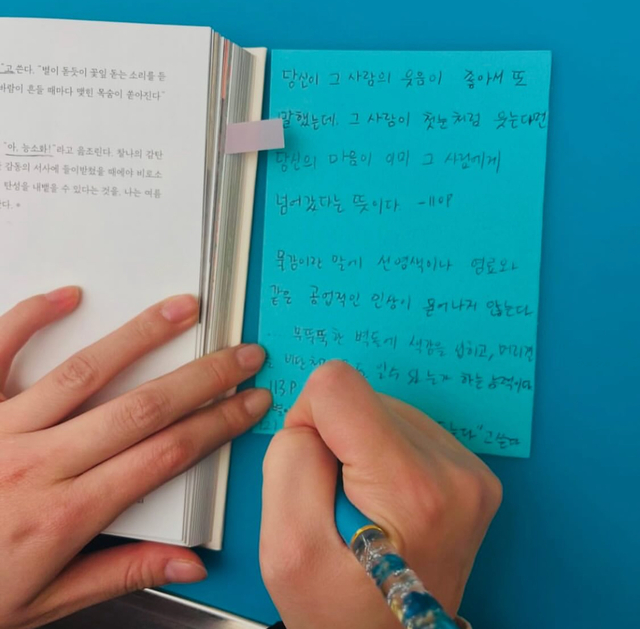 "고 쓴다. "별이 돋듯이 꽃잎 돋는 소리를 듣
바람이 흔들 때마다 맺힌 목숨이 쏟아진다"
"아, 능소화!"라고 읊조린다. 찰나의 감탄
감동의 서사에 들이받혔을 때에야 비로소
탄성을 내뱉을 수 있다는 것을. 나는 여름
당신이 그 사람의 웃음이 좋아서 또
말했는데. 그 사람이 첫눈처럼 웃는다면
당신의 마음이 이미 그 사람에게
넘어갔다는 뜻이다 -110P
물감이란 말에 선명색이나 염료와
같은 공업적인 인상이 묻어나지 않는다
무뚝뚝한 벽돌에 색감을 입히고, 머리칸
하는
113P
"고 쓴다